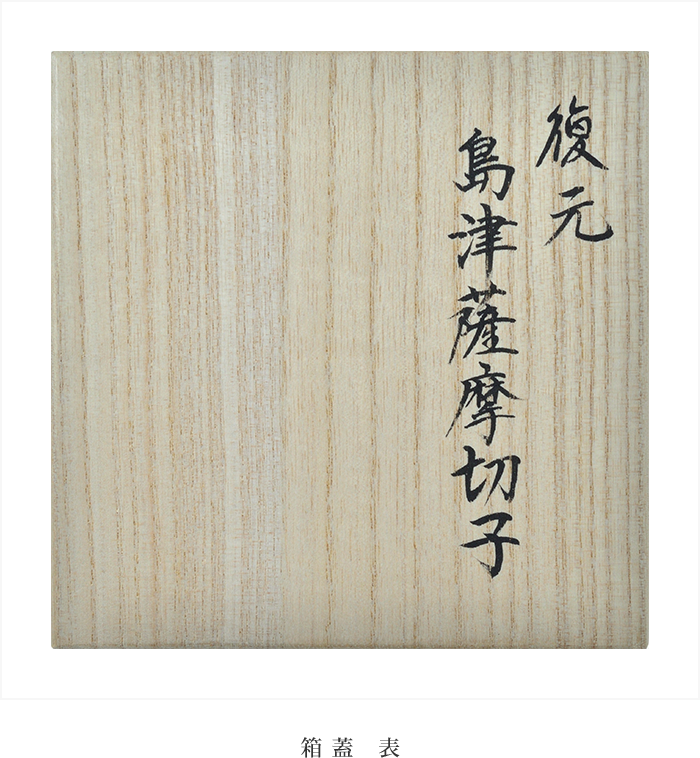 復元
島津薩摩切子
箱蓋　表